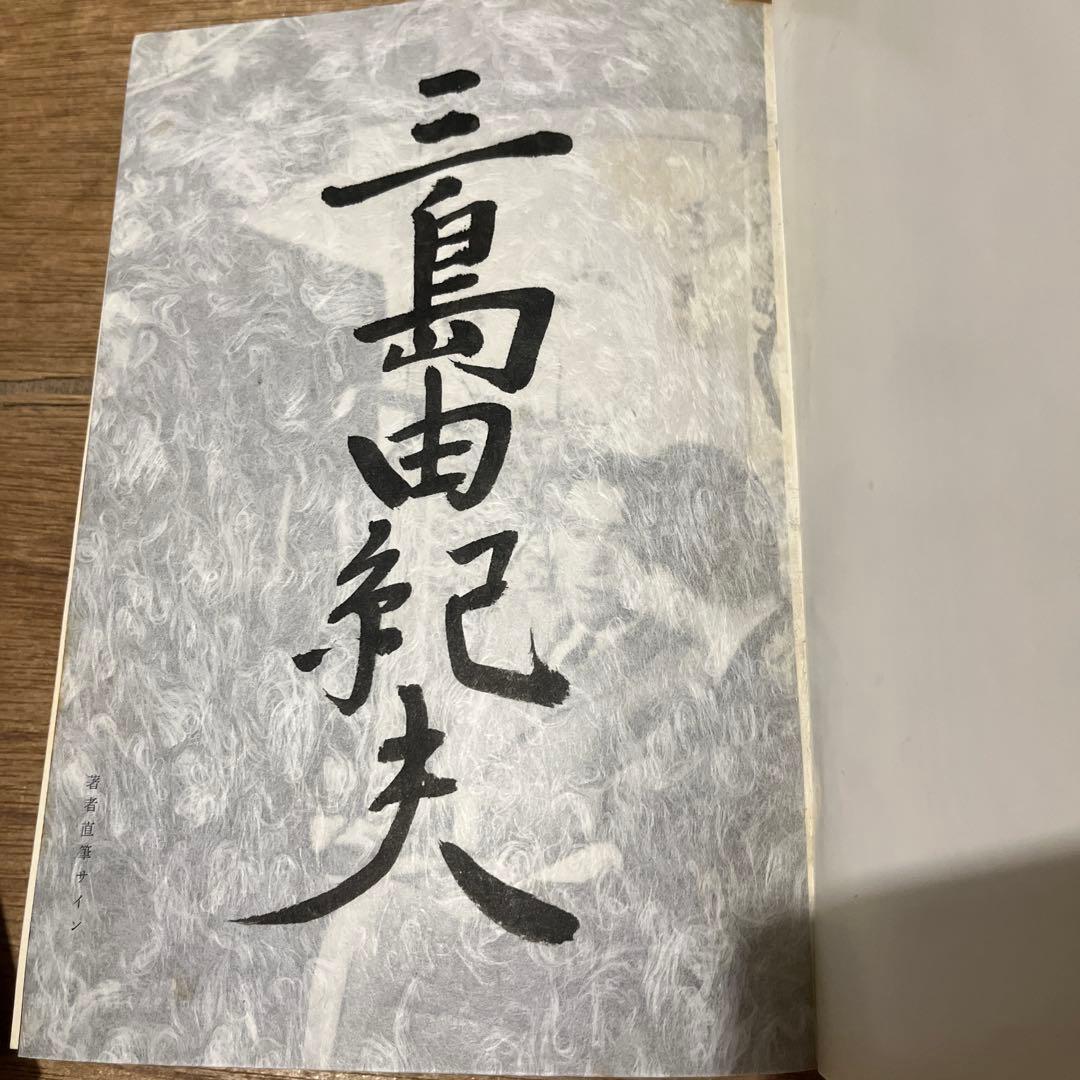 三島由紀夫
著者直筆サイン